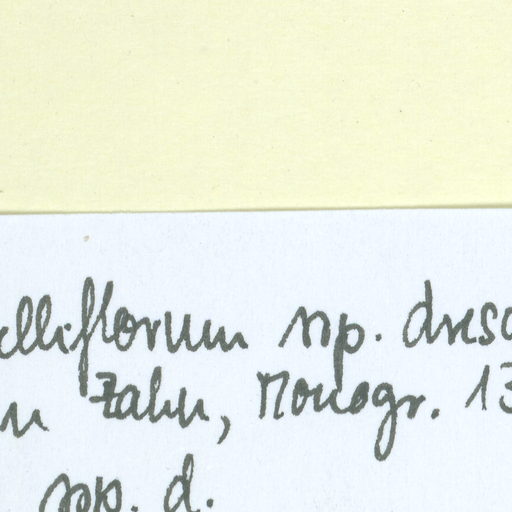 elliflorum ssp. dresd
in Zahn, Monogr. 13
ssp. d.